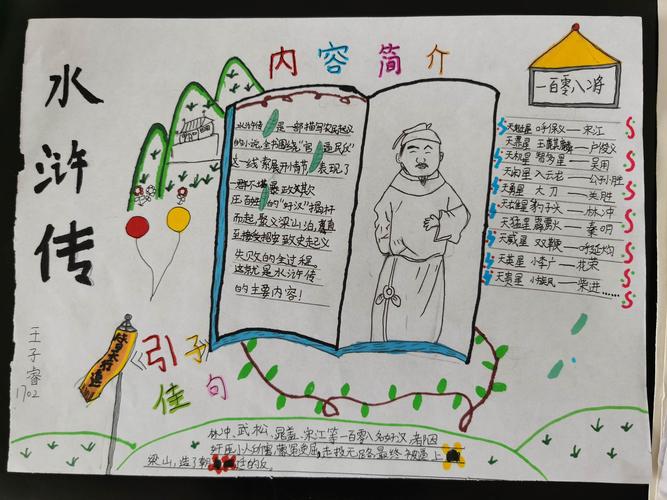 水浒传
王子睿
1702
内容简介
水浒传是一部描写农民起义
的小说,全书围绕"官逼民反"
这一线索展开小情节表现了
一群不堪暴政欺
压的"好汉"揭杆
而起,聚义梁山泊,直
至接受招安致史起义
失败的全过程
这就是水浒传
的主要内容!
一百零八将
天魁星 呼保义—宋江
天罡星 玉麒麟—卢俊义
天机星 智多星—吴用
天闲星 入云龙—公孙胜
天勇星 大刀—关胜
天雄星 豹子头—林冲
天猛星 霹雳火—秦明
天威星 双鞭—呼延灼
天英星 小李广—花荣
天贵星 小旋风—柴进……
替天行道
引子
佳句
林冲、武松、晁盖、宋江等一百零八名好汉,都因
奸臣小人所害,蒙受冤屈,走投无路,最终被逼上
梁山,造了朝廷的反。